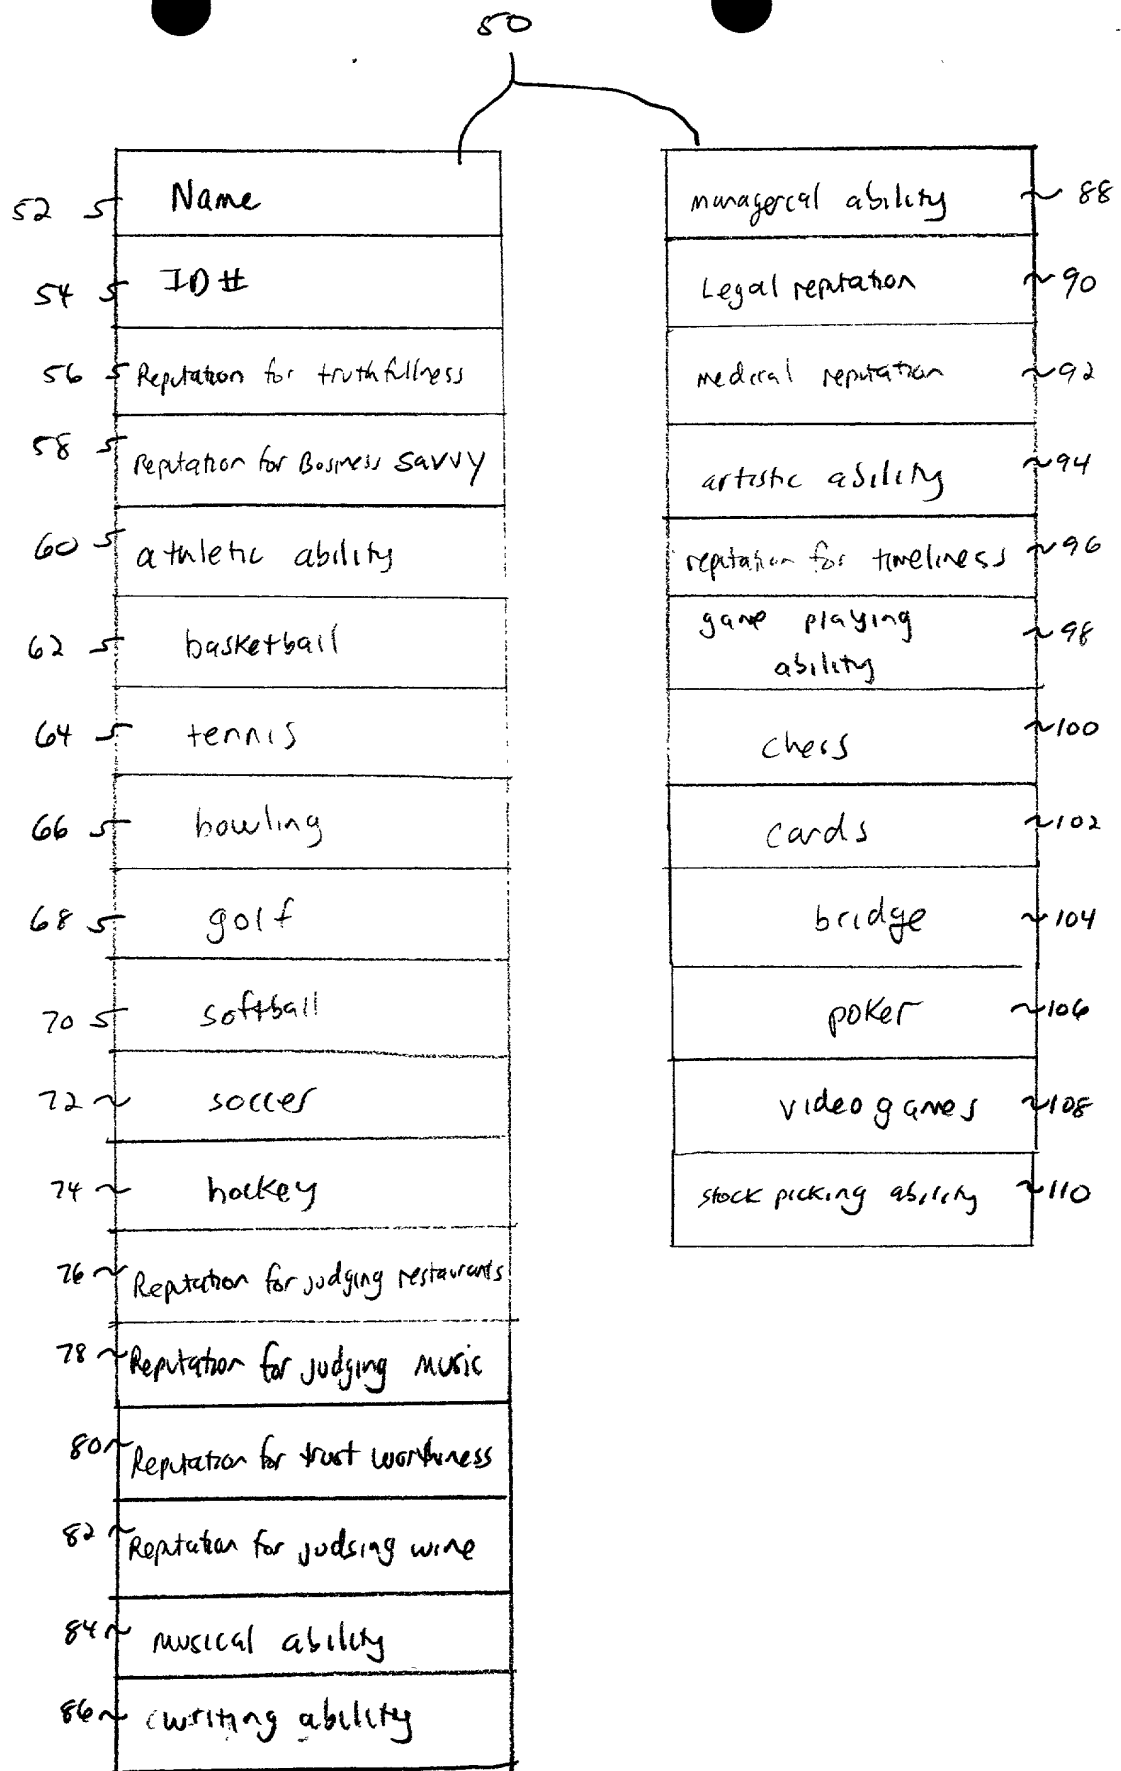 50
52 Name
54 ID #
56 Reputation for truthfullness
58 Reputation for Business savvy
60 athletic ability
62 basketball
64 tennis
66 bowling
68 golf
70 softball
72 soccer
74 hockey
76 Reputation for judging restaurants
78 Reputation for judging music
80 Reputation for trust worthiness
82 Reputation for judging wine
84 musical ability
86 writing ability
managercal ability 88
Legal reputation 90
medical reputation 92
artistic ability 94
reputation for timeliness 96
game playing 98
ability
chess 100
cards 102
bridge 104
poker 106
video games 108
stock picking ability 110